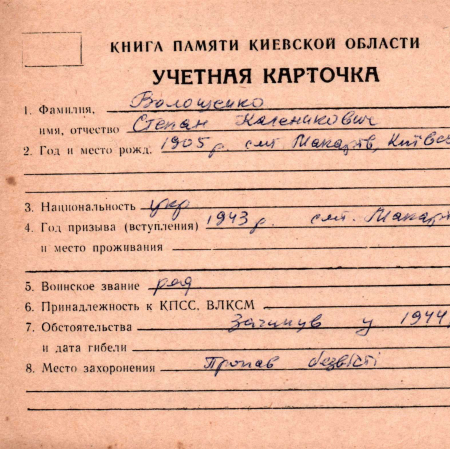 КНИГА ПАМЯТИ КИЕВСКОЙ ОБЛАСТИ
УЧЕТНАЯ КАРТОЧКА
1. Фамилия, Волощенко
имя, отчество Степан
2. Год и место рожд. 1905 р. смт Макарів,
3. Национальность укр
4. Год призыва (вступления) 1943 р. смт.
и место проживания
5. Воинское звание ряд
6. Принадлежность к КПСС. ВЛКСМ
7. Обстоятельства Загинув у 1944
и дата гибели
8. Место захоронения Пропав безвісті